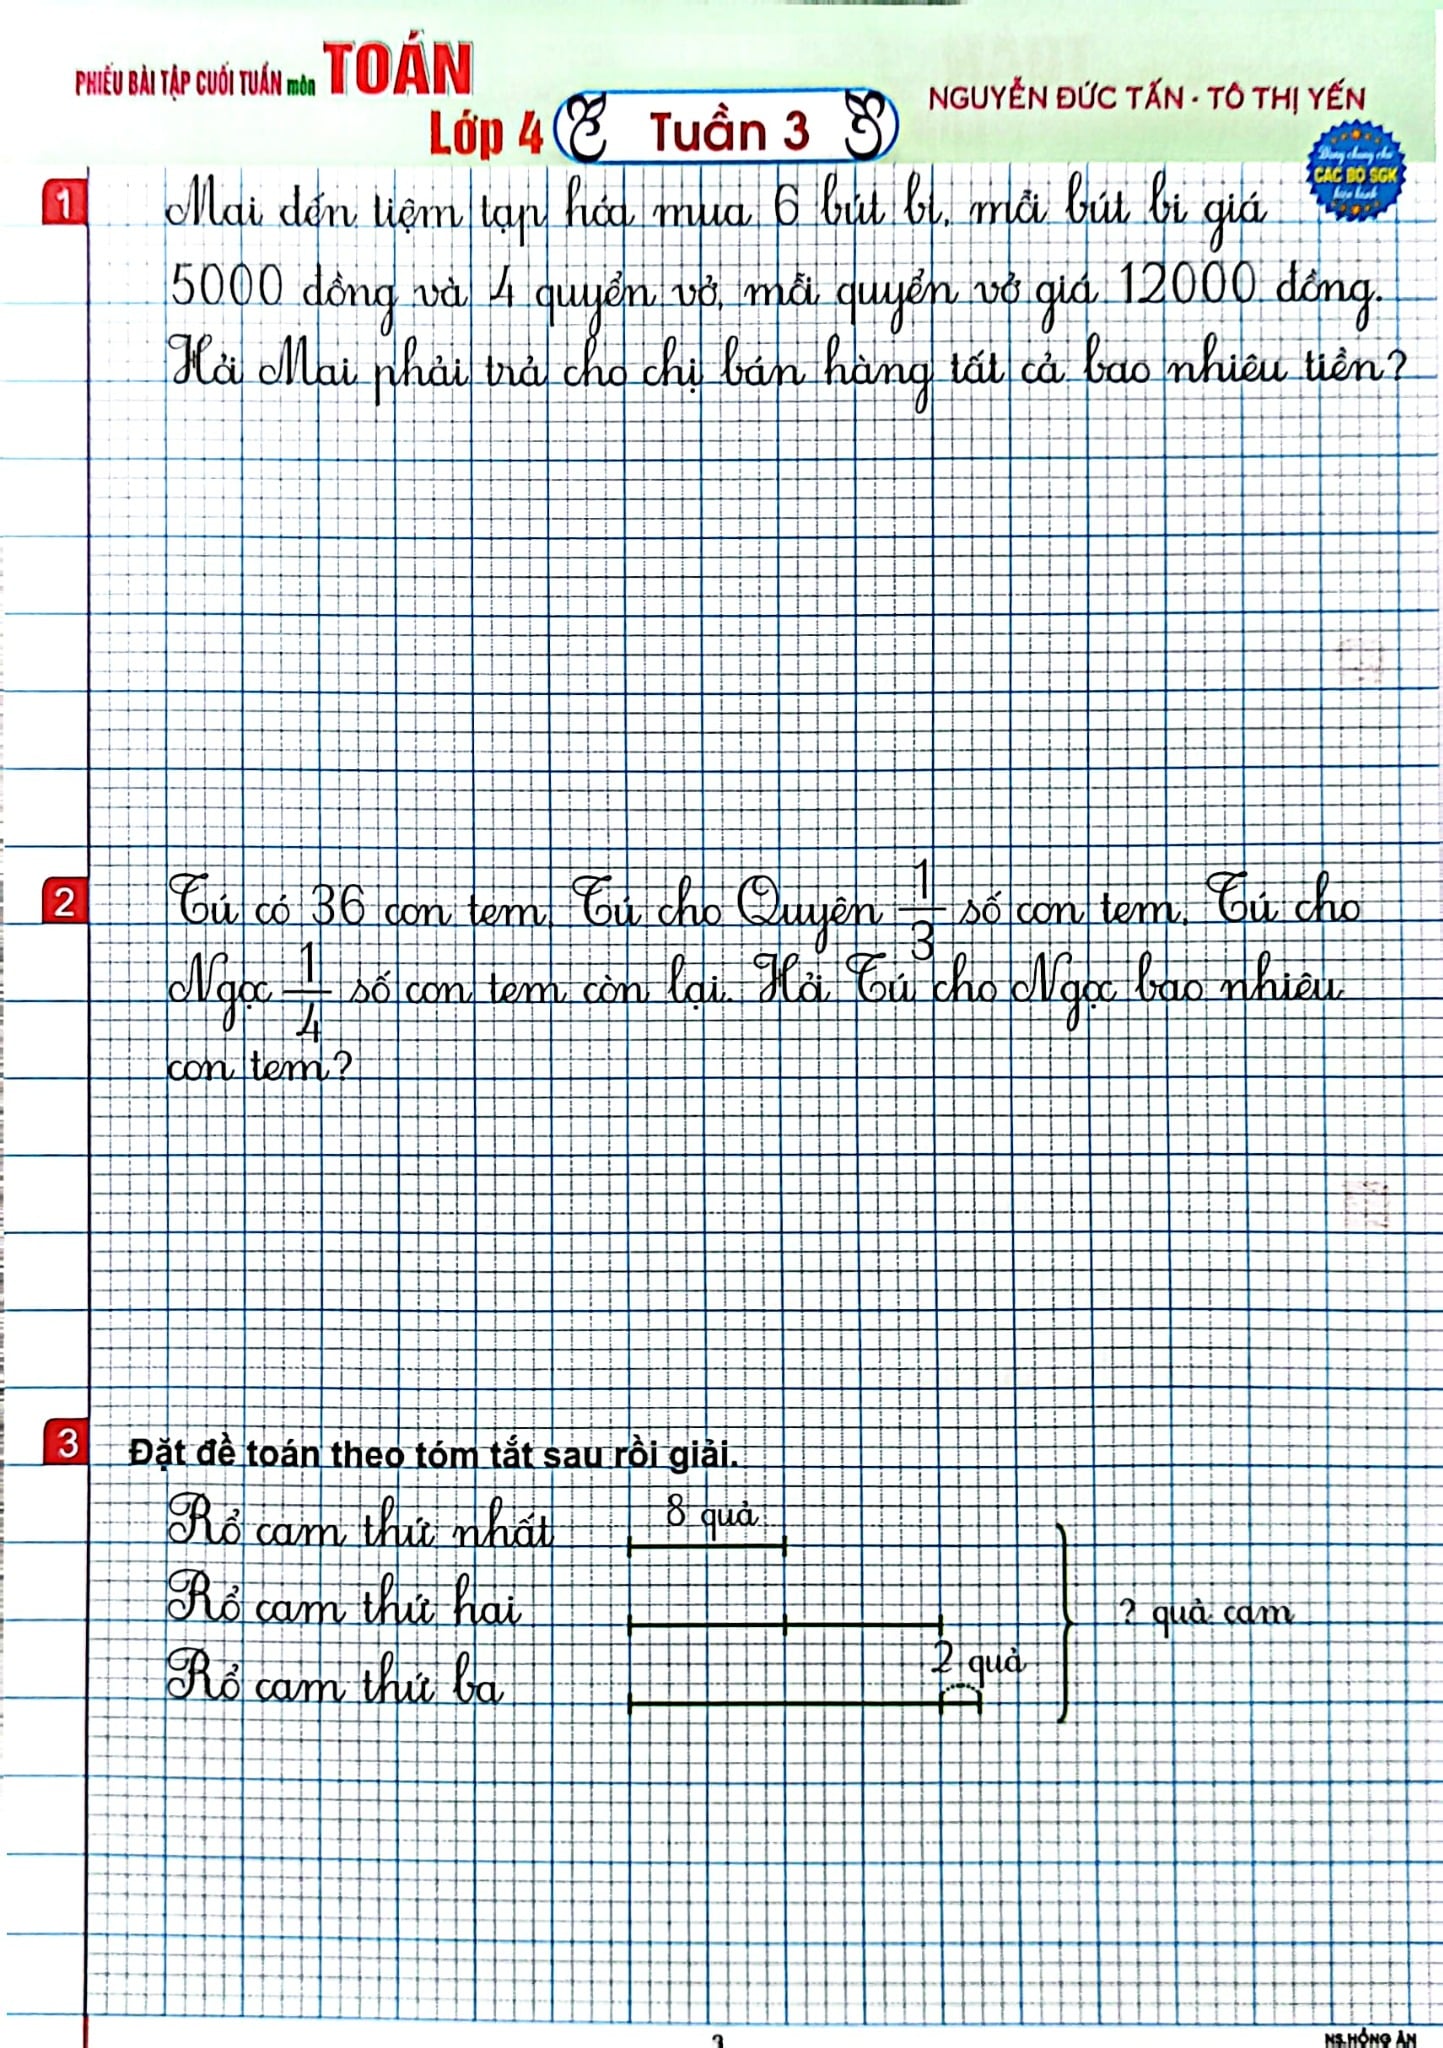 PHIẾU BÀI TẬP CUỐI TUẦN môn TOÁN
Lớp 4
Tuần 3
NGUYỄN ĐỨC TẤN - TÔ THỊ YẾN
Dùng chung cho
CÁC BỘ SGK
hiện hành
1
Mai đến tiệm tạp hóa mua 6 bút bi, mỗi bút bi giá
5000 đồng và 4 quyển vở, mỗi quyển vở giá 12000 đồng.
Hỏi Mai phải trả cho chị bán hàng tất cả bao nhiêu tiền?
2
Tú có 36 con tem. Tú cho Quyên 1/3 số con tem. Tú cho
Ngọc 1/4 số con tem còn lại. Hỏi Tú cho Ngọc bao nhiêu
con tem?
3
Đặt đề toán theo tóm tắt sau rồi giải.
Rổ cam thứ nhất 8 quả
Rổ cam thứ hai ? quả cam
Rổ cam thứ ba 2 quả
3
NS.HỒNG ÂN